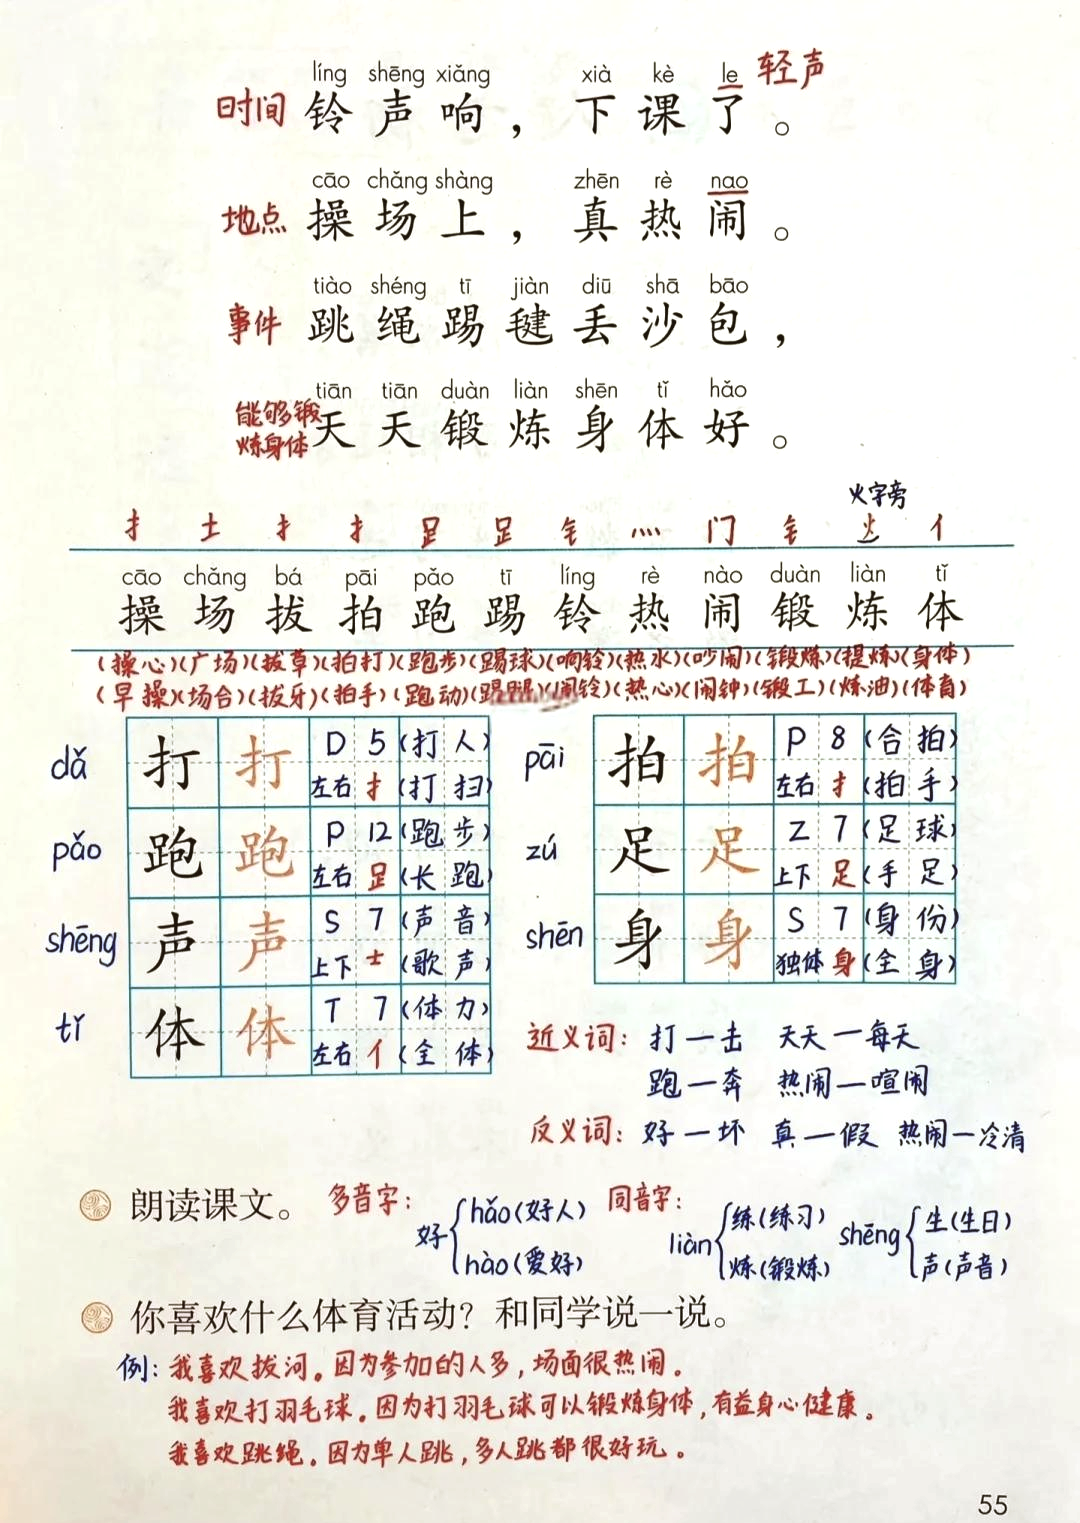 líng shēng xiǎng xià kè le 轻声
时间 铃声响，下课了。
cāo chǎng shàng zhēn rè nao
地点 操场上，真热闹。
tiào shéng tī jiàn diū shā bāo
事件 跳绳踢毽丢沙包，
tiān tiān duàn liàn shēn tǐ hǎo
能够锻炼身体 天天锻炼身体好。
火字旁
扌 土 扌 扌 𧾷 𧾷 钅 灬 门 钅 火 亻
cāo chǎng bá pāi pǎo tī líng rè nào duàn liàn tǐ
操 场 拔 拍 跑 踢 铃 热 闹 锻 炼 体
(操心)(广场)(拔草)(拍打)(跑步)(踢球)(响铃)(热水)(吵闹)(锻炼)(提炼)(身体)
(早操)(场台)(拔牙)(拍手)(跑动)(闹铃)(热心)(闹钟)(锻工)(炼油)(体育)
dǎ 打 打 D 5 (打人)
左右 扌 (打扫)
pāi 拍 拍 P 8 (合拍)
左右 扌 (拍手)
pǎo 跑 跑 P 12 (跑步)
左右 𧾷 (长跑)
zú 足 足 Z 7 (足球)
上下 足 (手足)
shēng 声 声 S 7 (声音)
上下 士 (歌声)
shēn 身 身 S 7 (身份)
独体 身 (全身)
tǐ 体 体 T 7 (体力)
左右 亻 (全体)
近义词：打—击 天天—每天
跑—奔 热闹—喧闹
反义词：好—坏 真—假 热闹—冷清
朗读课文。
多音字：好 hǎo(好人) hào(爱好)
同音字：liàn 练(练习) 炼(锻炼) shēng 生(生日) 声(声音)
你喜欢什么体育活动？和同学说一说。
例：我喜欢拔河。因为参加的人多，场面很热闹。
我喜欢打羽毛球。因为打羽毛球可以锻炼身体，有益身心健康。
我喜欢跳绳。因为单人跳，多人跳都很好玩。
55